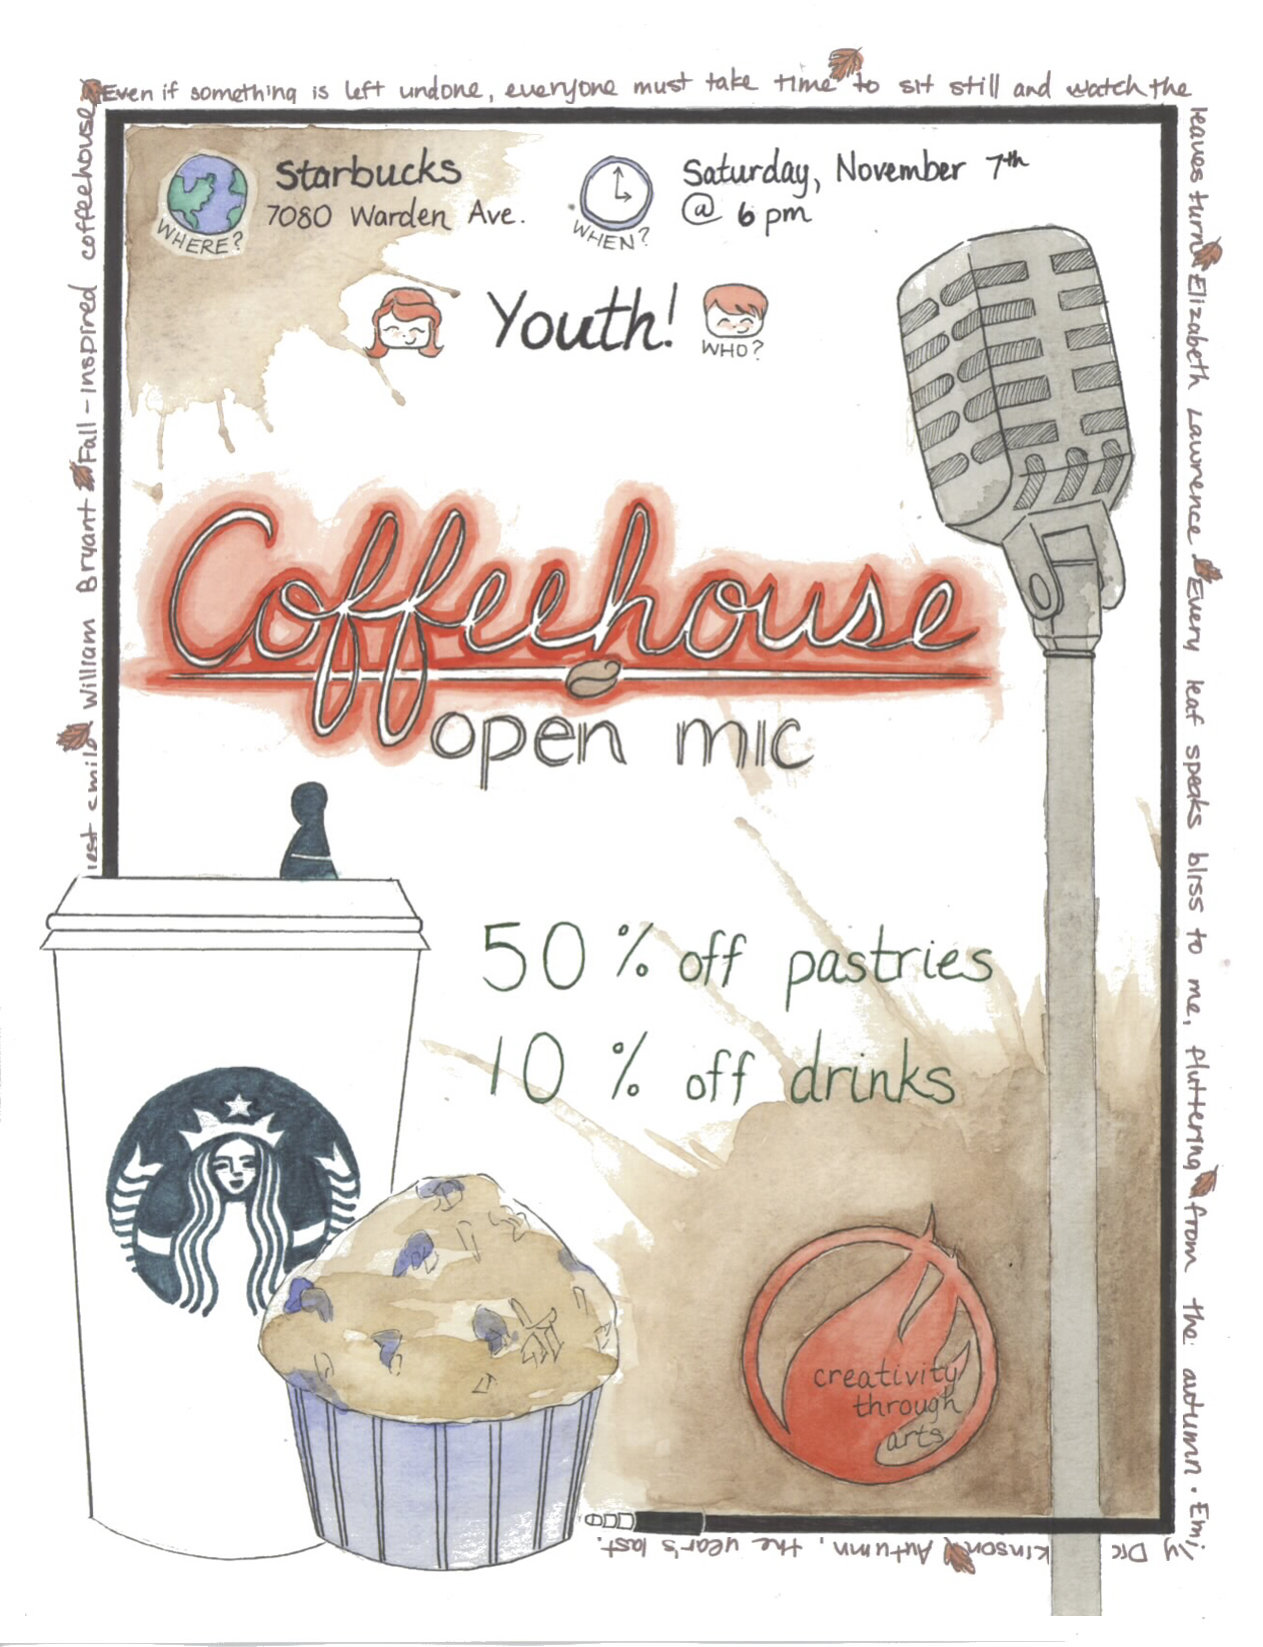 Even if something is left undone, everyone must take time to sit still and watch the
leaves turn Elizabeth Lawrence Every leaf speaks blrss to me, fluttering from the autumn. Emi
ly Dic kinson Autumn, the year's last
iest smile William Bryant Fall-inspired coffeehouse
Starbucks
7080 Warden Ave.
WHERE?
Saturday, November 7th
@ 6 pm
WHEN?
Youth!
WHO?
Coffeehouse
open mic
50 % off pastries
10 % off drinks
creativity
through
arts